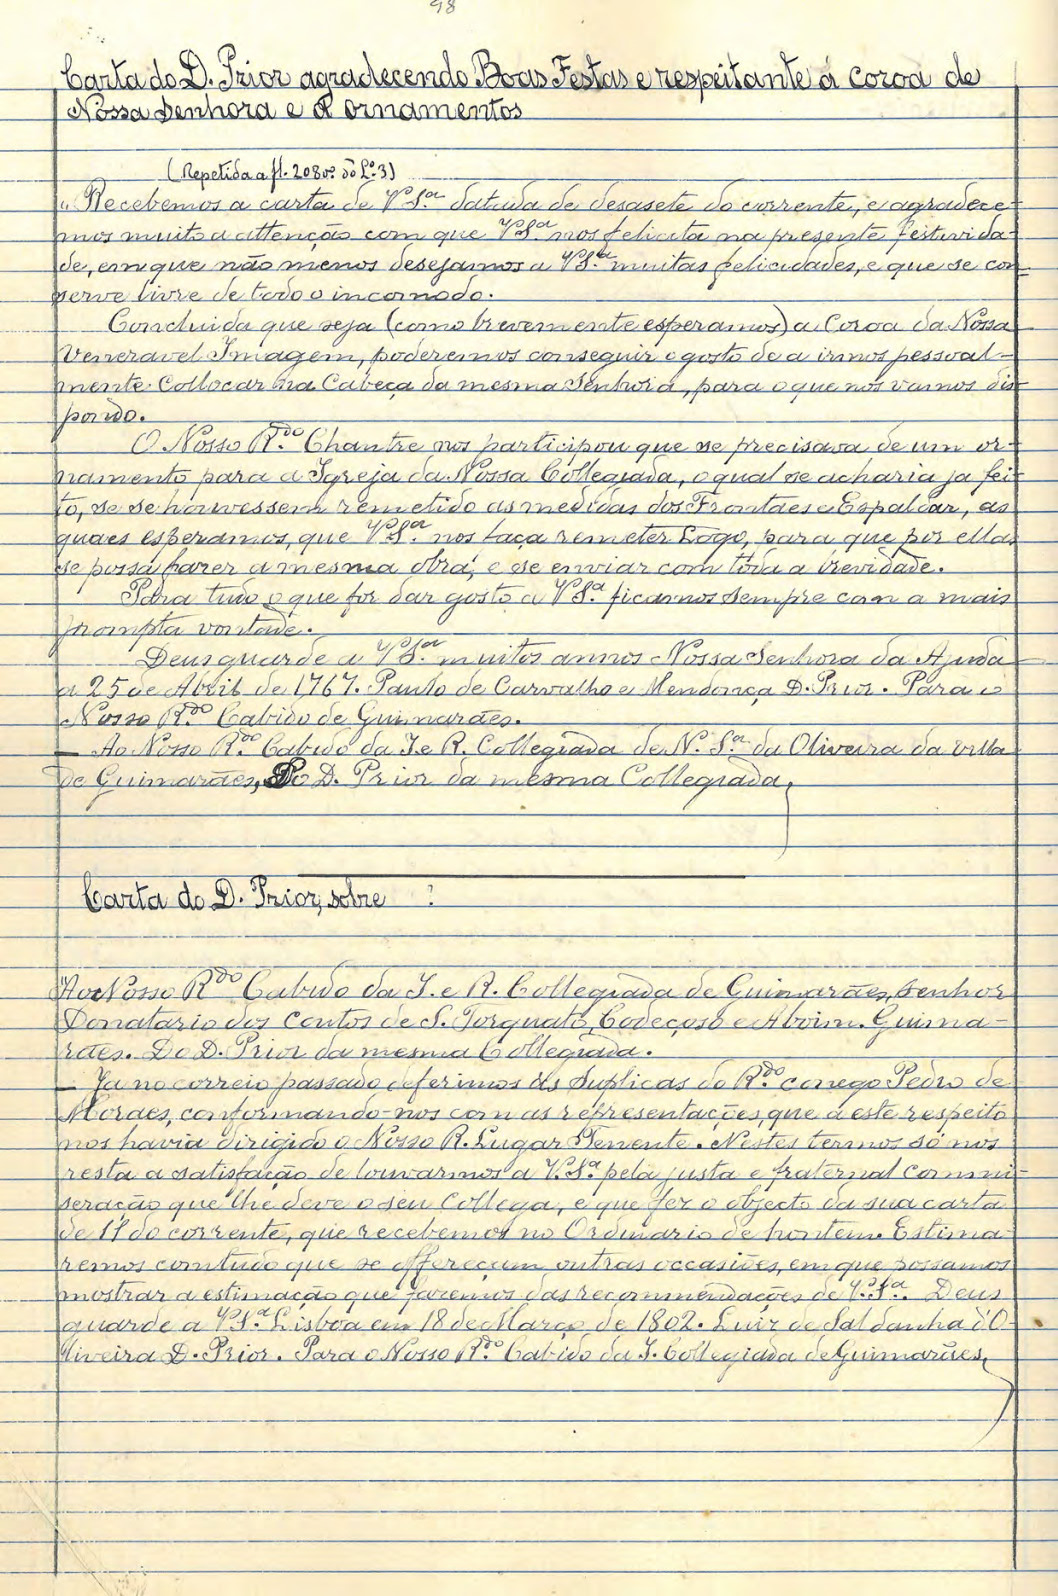 98
Carta do D. Prior agradecendo Boas Festas e respeitante á coroa de
Nossa Senhora e a ornamentos
(Repetida a fl. 208vº do Lº 3)
"Recebemos a carta de V Sª datada de desasete do corrente, e agradece-
mos muito a attenção com que V Sª nos felicita na presente festivida-
de, em que não menos desejamos a V Sª muitas felicidades, e que se con-
serve livre de todo o incomodo.
Concluida que seja (como brevemente esperamos) a Coroa da Nossa
Veneravel Imagem, poderemos conseguir o gosto de a irmos pessoal-
mente Collocar na Cabeça da mesma Senhora, para o que nos vamos dis-
pondo.
O Nosso R.do Chantre nos participou que se precisava de um or-
namento para a Igreja da Nossa Collegiada, o qual se acharia ja fei-
to, se se houvessem remetido as medidas dos Frontaes e Espaldar, as
quaes esperamos, que V Sª nos faça remeter Logo, para que por ellas
se possa fazer a mesma obra, e se enviar com toda a brevidade.
Para tudo o que for dar gosto a V Sª ficamos sempre com a mais
prompta vontade.
Deus guarde a V Sª muitos annos Nossa Senhora da Ajuda
a 25 de Abril de 1767. Paulo de Carvalho e Mendonça D. Prior. Para o
Nosso R.do Cabido de Guimarães.
— Ao Nosso R.do Cabido da I. e R. Collegiada de N. Sª da Oliveira da villa
de Guimarães, Do D. Prior da mesma Collegiada,
Carta do D. Prior, sobre ?
"Ao Nosso R.do Cabido da I. e R. Collegiada de Guimarães, Senhor
Donatario dos Coutos de S. Torquato, Codeçoso e Aboim. Guima-
rães. Do D. Prior da mesma Collegiada.
— Ja no correio passado deferimos ás suplicas do R.do conego Pedro de
Moraes, conformando-nos com as representações, que a este respeito
nos havia dirigido o Nosso R. Lugar Tenente. Nestes termos só nos
resta a satisfação de louvarmos a V. Sª pela justa e fraternal commi-
seração que lhe deve o seu Collega, e que fez o objecto da sua carta
de 11 do corrente, que recebemos no Ordinario de hontem. Estima-
remos comtudo que se offereçam outras occasiões, em que possamos
mostrar a estimação que fazemos das recommendações de V. Sª. Deus
guarde a V Sª Lisboa em 18 de Março de 1802. Luiz de Saldanha d'O-
liveira D. Prior. Para o Nosso R.do Cabido da I. Collegiada de Guimarães,